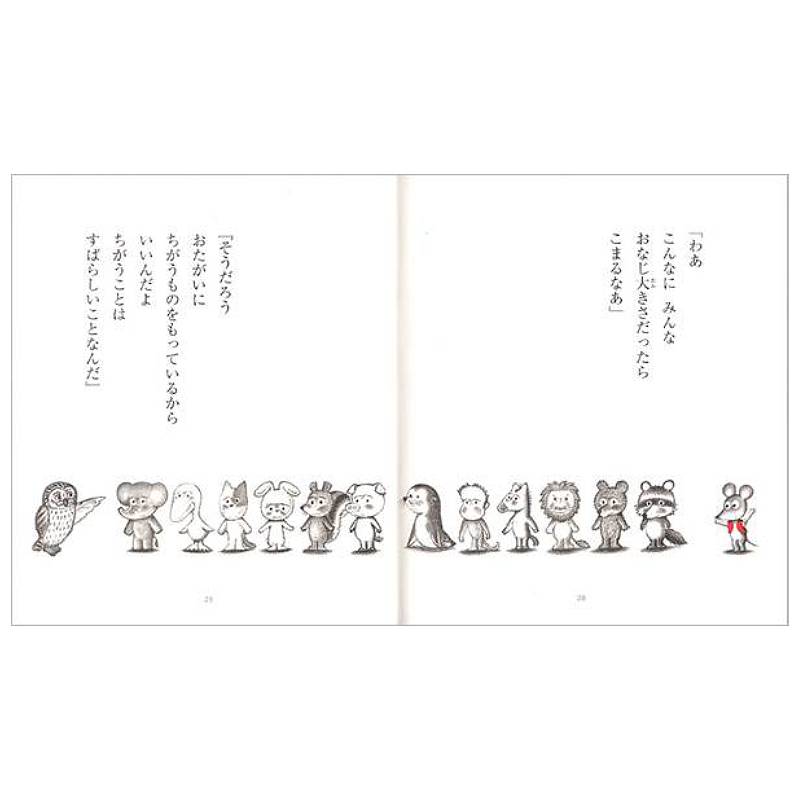 「わあ
こんなに みんな
おなじ大きさだったら
こまるなあ」
28
『そうだろう
おたがいに
ちがうものをもっているから
いいんだよ
ちがうことは
すばらしいことなんだ』